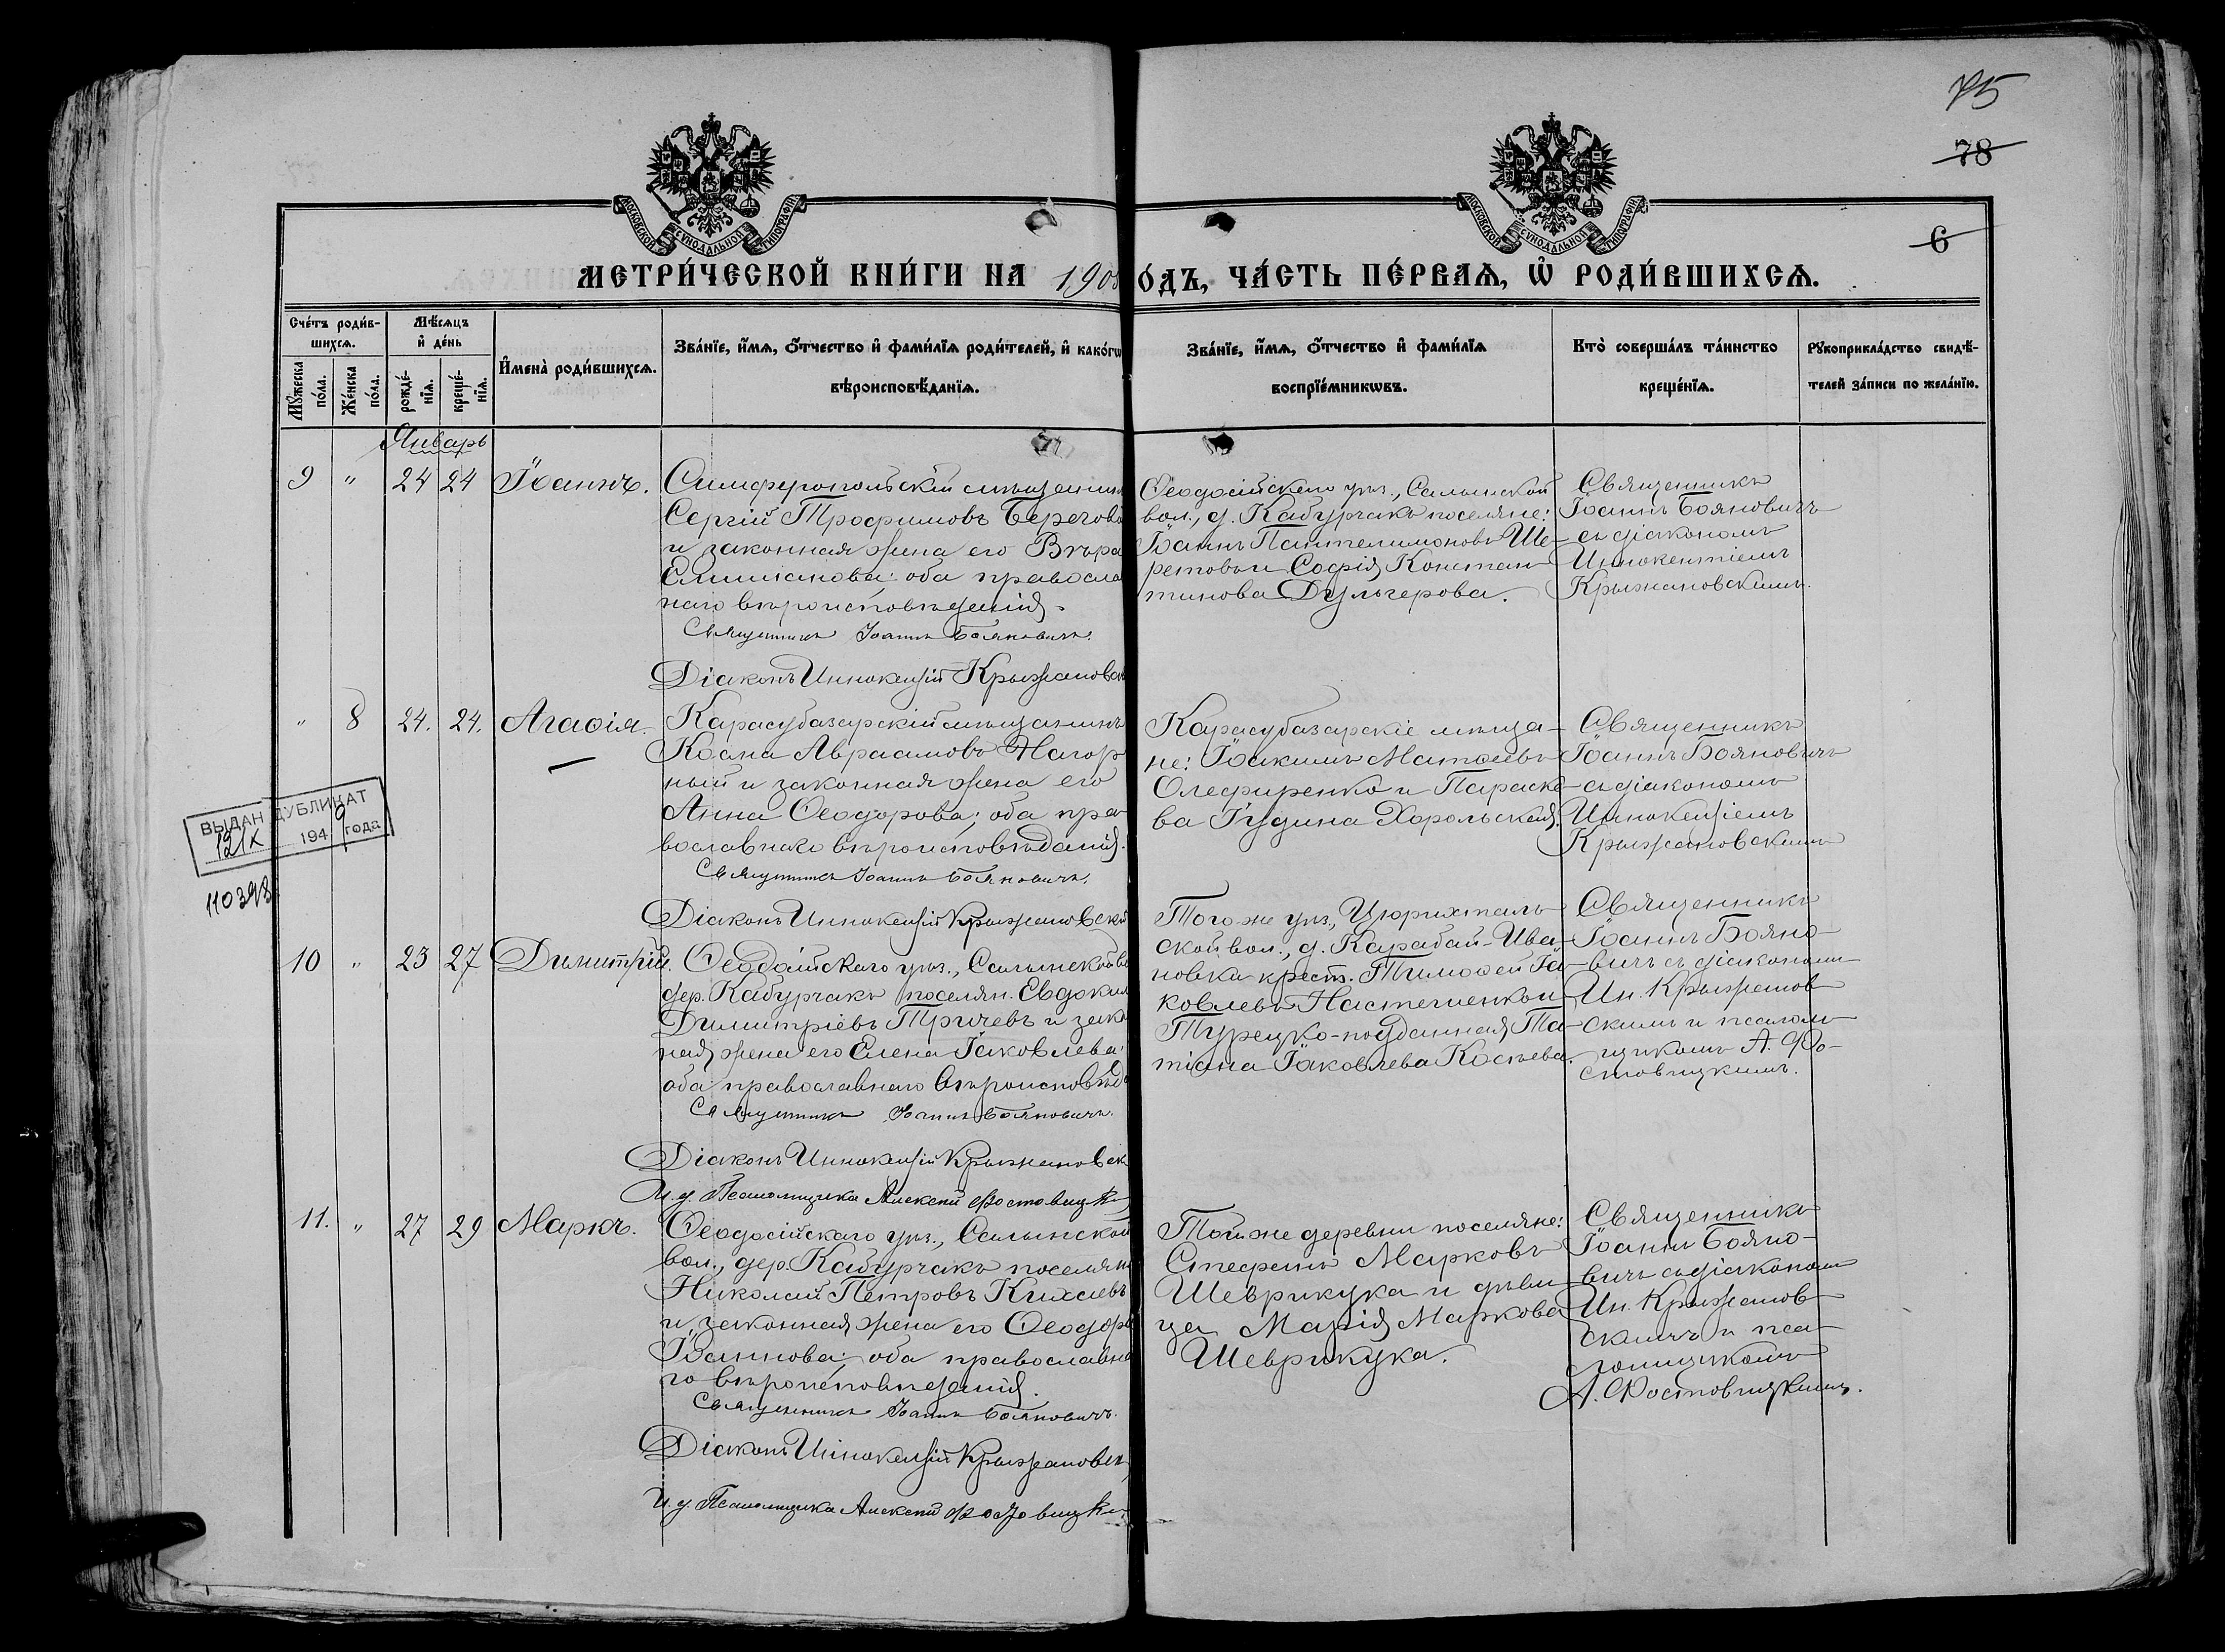 75
78
6
МОСКОВСКОЙ СѴНОДАЛЬНОЙ ТИПОГРАФІИ
МОСКОВСКОЙ СѴНОДАЛЬНОЙ ТИПОГРАФІИ
МЕТРИ́ЧЕСКОЙ КНИ́ГИ НА 1908 О́ДЪ, ЧА́СТЬ ПЕ́РВАѦ, Ѡ҆ РОДИ́ВШИХСѦ.
Сче́тъ роди́в-
шихсѧ.
Мꙋ́жеска по́ла.
Же́нска по́ла.
Мѣ́сѧцъ
и҆ де́нь
рожде́-
нїѧ.
креще́-
нїѧ.
И҆мена̀ роди́вшихсѧ.
Зва́нїе, и҆́мѧ, ѻ҆́тчество и҆ фами́лїѧ роди́телей, и҆ како́гѡ
вѣроисповѣ́данїѧ.
Зва́нїе, и҆́мѧ, ѻ҆́тчество и҆ фами́лїѧ
воспрїе́мникѡвъ.
Кто̀ соверша́лъ та́инство
креще́нїѧ.
Рꙋкоприкла́дство свидѣ́-
телей за́писи по жела́нїю.
Январь
9 " 24 24 Іоаннъ.
Симферопольскій мѣщанинъ
Сергій Трофимовъ Берегово
и законная жена его Вѣра
оба правосла
наго вѣроисповѣданія.
Священникъ Іоаннъ Бояновичъ.
Діаконъ Иннокентій Крыжановск
Ѳеодосійскаго уѣз., Салынской
вол., д. Кабурчакъ поселяне:
Іоаннъ Пантелимоновъ Ше-
ретовъ и Софія Констан-
тинова Дульгерова.
Священникъ
Іоаннъ Бояновичъ
съ діакономъ
Иннокентіемъ
Крыжановскимъ.
" 8 24. 24. Агаѳія.
Карасубазарскій мѣщанинъ
Косма Авраамовъ Нагор
ный и законная жена его
Анна Ѳеодорова; оба пра-
вославнаго вѣроисповѣданія.
Священникъ Іоаннъ Бояновичъ.
Діаконъ Иннокентій Крыжановскій
Карасубазарскіе мѣща-
не: Іоакимъ Матѳеевъ
Олефиренко и Параске-
ва Іудина Хорольская.
Священникъ
Іоаннъ Бояновичъ
съ діакономъ
Иннокентіемъ
Крыжановскимъ
ВЫДАН ДУБЛИКАТ
12/IX 1949 года
110398
10 " 23 27 Димитрій.
Ѳеодосійскаго уѣз., Салынской во
дер. Кабурчакъ поселян. Евдоким
Димитріевъ Тричевъ и зако
ная жена его Елена Іаковлева;
оба православнаго вѣроисповѣд
Священникъ Іоаннъ Бояновичъ.
Діаконъ Иннокентій Крыжановск
И. д. Псаломщика Алексей Фостовицкій
Того-же уѣз., Цюрихталь-
ской вол., д. Карабай-Ива-
новка крест. Тимоѳей Іа-
ковлевъ Настеченко и
Турецко-подданная Та-
тіана Іаковлева Косьева.
Священникъ
Іоаннъ Бояно-
вичъ съ діакономъ
Ин. Крыжанов-
скимъ и псалом-
щикомъ А. Фо-
стовицкимъ.
11. " 27 29 Маркъ.
Ѳеодосійскаго уѣз., Салынской
вол., дер. Кабурчакъ поселян
Николай Петровъ Кихаевъ
и законная жена его Ѳеодора
Іоаннова; оба православна
го вѣроисповѣданія.
Священникъ Іоаннъ Бояновичъ.
Діаконъ Иннокентій Крыжановск
И. д. Псаломщика Алексей Фостовицкій
Той-же деревни поселяне:
Стефанъ Марковъ
Шеврикука и дѣви-
ца Марія Маркова
Шеврикука.
Священникъ
Іоаннъ Бояно-
вичъ съ діакономъ
Ин. Крыжанов-
скимъ и пса-
ломщикомъ
А. Фостовицкимъ.